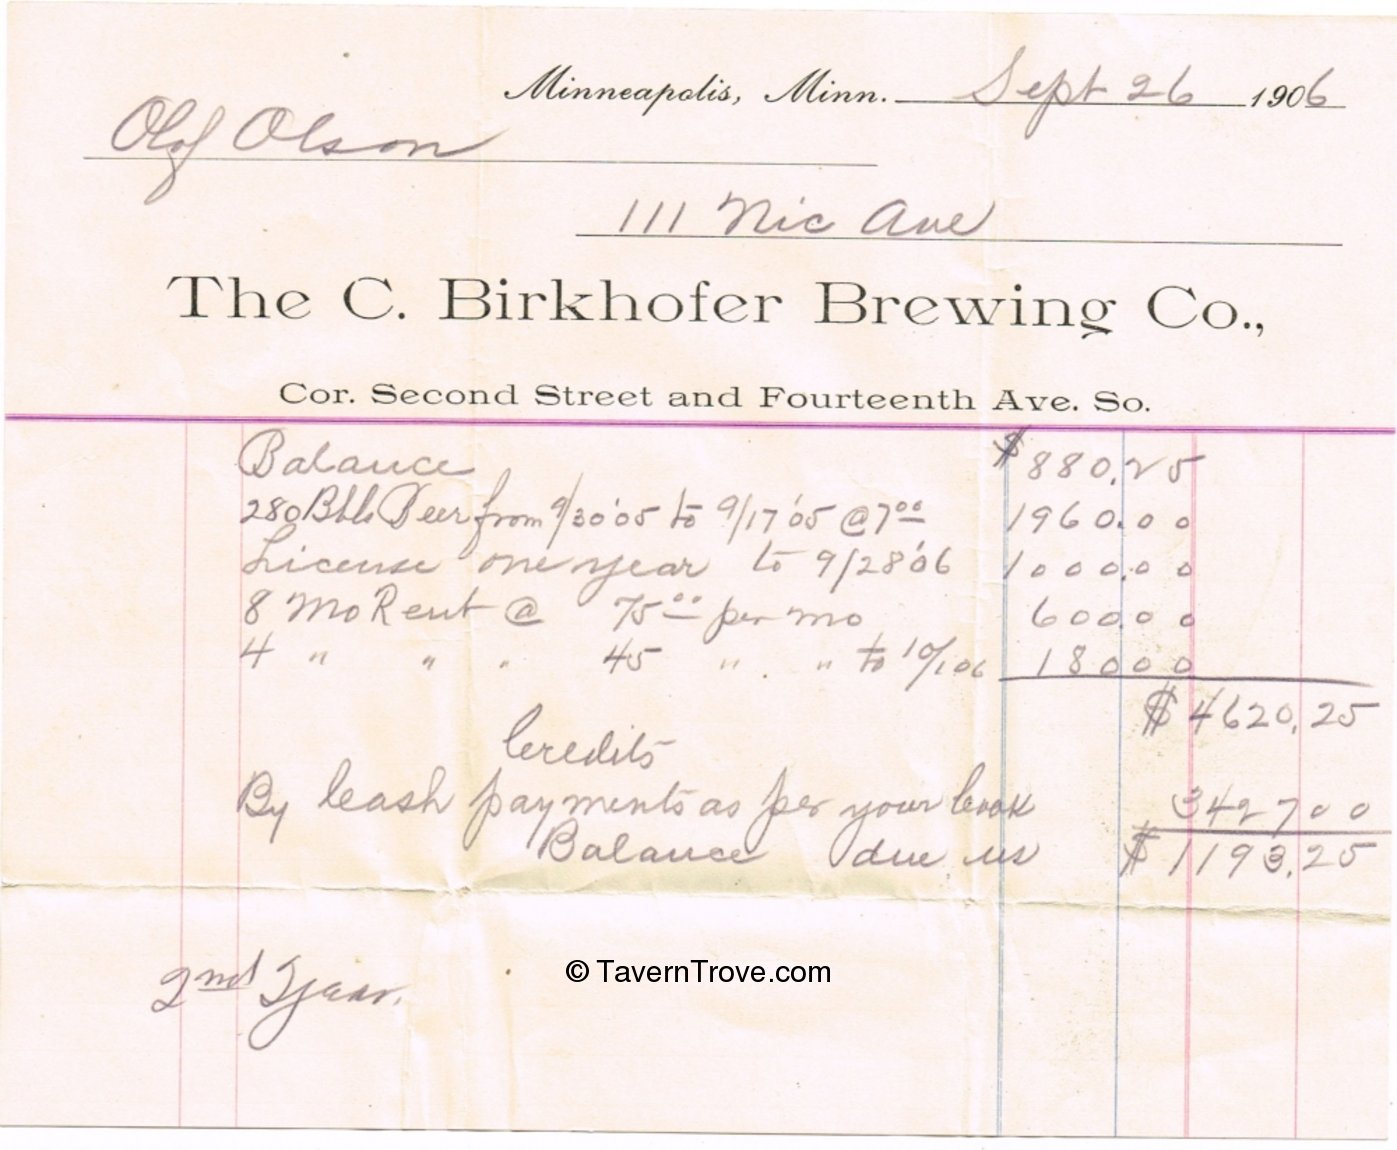 Minneapolis, Minn. Sept 26 1906
Olof Olson
111 Nic Ave
The C. Birkhofer Brewing Co.,
Cor. Second Street and Fourteenth Ave. So.
Balance $880.25
280 Bbls Beer from 9/30'05 to 9/17'05 @ 7 00 1960.00
License one year to 9/28'06 1000.00
8 Mo Rent @ 75 00 per mo 600.00
4 " " " 45 " " to 10/1 06 180 00
$4620.25
Credits
By Cash payments as per your book 3427 00
Balance due us $1193.25
2nd year.
© TavernTrove.com